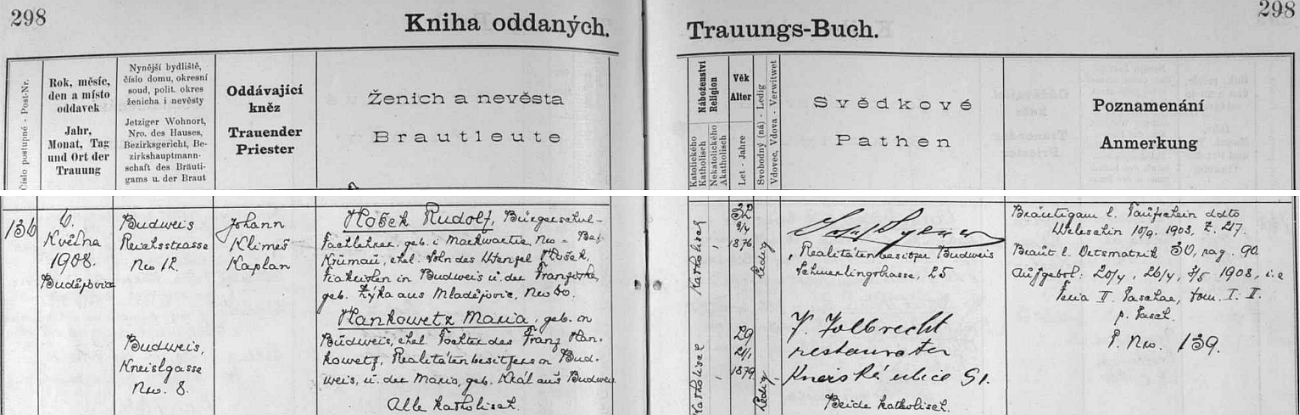 298
Kniha oddaných.
Trauungs-Buch.
298
Číslo postupné - Post-Nr.
Rok, měsíc,
den a místo
oddavek
Jahr,
Monat, Tag
und Ort der
Trauung
Nynější bydliště,
číslo domu, okresní
soud, polit. okres
ženicha i nevěsty
Jetziger Wohnort,
Nro. des Hauses,
Bezirksgericht, Be-
zirkshauptmann-
schaft des Bräuti-
gams u. der Braut
Oddávající
kněz
Trauender
Priester
Ženich a nevěsta
Brautleute
Náboženství
Religion
Katolického
Katholisch
Nekatolického
Akatholisch
Věk
Alter
Let - Jahre
Svobodný (ná) - Ledig
Vdovec, Vdova - Verwitwet
Svědkové
Pathen
Poznamenání
Anmerkung
136
6.
Května
1908.
Budějovice
Budweis
Reichsstrasse
Nro 12.
Johann
Klimeš
Kaplan
Hošek Rudolf, Bürgerschul-
Fachlehrer, geb. i. Markwartic, Nro - Bez.
Krumau, ehel. Sohn des Wenzel Hošek,
in Budweis u. der Franziska,
geb. Zýka aus Mladějovic, Nro 60.
Katholisch
32
9/4
1876
Ledig
Realitätenbesitzer Budweis
Schmerlingstrasse, 25
Bräutigam l. Taufschein ddto
Weleschin 10/9. 1903, Z. 217.
Braut l. Ortsmatrik 30, pag. 90
Aufgebot: 20/4, 26/4, 3/5 1908, i. e
Feria II. Paschae, Dom. I. II.
p. Pasch.
P. Nro. 139.
Budweis,
Kneislgasse
Nro. 8.
Hankowetz Maria, geb. in
Budweis, ehel. Tochter des Franz Han-
kowetz, Realitätenbesitzers in Bud-
weis, u. der Maria, geb. Král aus Budweis
Alle katholisch.
Katholisch
29
2/1
1879
Ledig
restaurater
Kneiská ulice 51.
Beide katholisch.